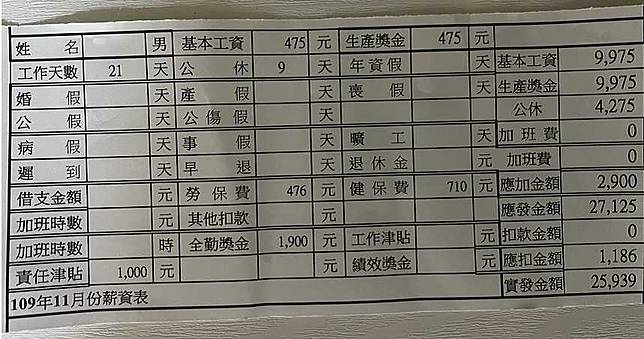 姓 名 男 基本工資 475 元 生產獎金 475 元
工作天數 21 天 公 休 9 天 年資假 天 基本工資 9,975
婚 假 天 產 假 天 喪 假 天 生產獎金 9,975
公 假 天 公傷假 天 公休 4,275
病 假 天 事 假 天 曠 工 天 加班費 0
遲 到 天 早 退 天 退休金 元 加班費 0
借支金額 元 勞保費 476 元 健保費 710 元 應加金額 2,900
加班時數 元 其他扣款 元 應發金額 27,125
加班時數 時 全勤獎金 1,900 元 工作津貼 元 扣款金額 0
責任津貼 1,000 元 元 績效獎金 元 應扣金額 1,186
109年11月份薪資表 實發金額 25,939